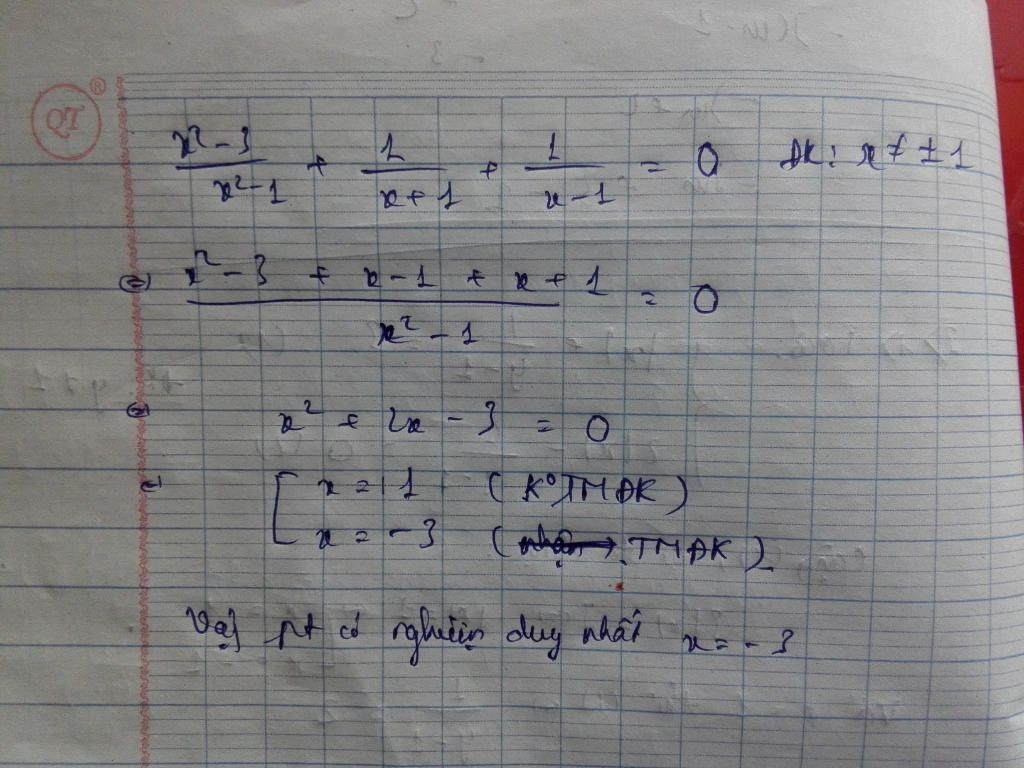 QT ®
x² - 3 / x² - 1 + 1 / x + 1 + 1 / x - 1 = 0 ĐK: x ≠ ± 1
⇔ x² - 3 + x - 1 + x + 1 / x² - 1 = 0
⇔ x² + 2x - 3 = 0
⇔ [ x = 1 ( K° TMĐK )
x = -3 ( TMĐK )
Vậy pt có nghiệm duy nhất x = - 3